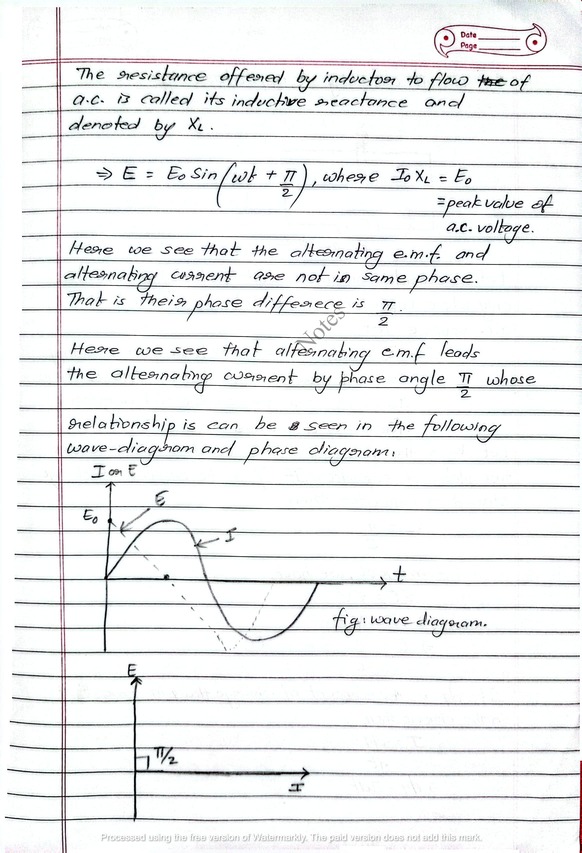 Date
Page
The resistance offered by inductor to flow the of
a.c. is called its inductive reactance and
denoted by XL.
⇒ E = E₀ Sin(wt + π/2), where I₀XL = E₀
= peak value of
a.c. voltage.
Here we see that the alternating e.m.f. and
alternating current are not in same phase.
That is their phase differece is π/2.
Notes
Here we see that alternating e.m.f leads
the alternating current by phase angle π/2 whose
relationship is can be seen in the following
wave-diagram and phase diagram:
I or E
E₀
E
I
t
fig: wave diagram.
E
π/2
I
Processed using the free version of Watermarkly. The paid version does not add this mark.